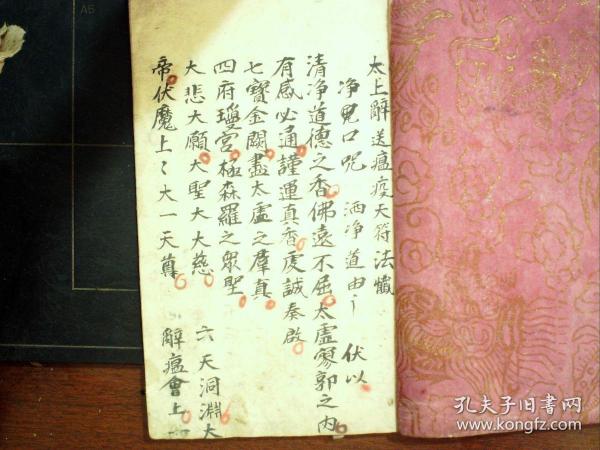 太上辭送瘟疫天符法懺
净見口呪 洒净道由〻 伏以
清净道德之香佛遠不屈太虚寥郭之内
有感必通謹運真香虔誠奏啟
七寶金闕盡太虚之羣真
四府瓊宫極森羅之衆聖
大悲大願大聖大大慈 六天洞淵大
帝伏魔上〻大一天尊 辭瘟會上
A5
孔夫子旧书网
www.kongfz.com